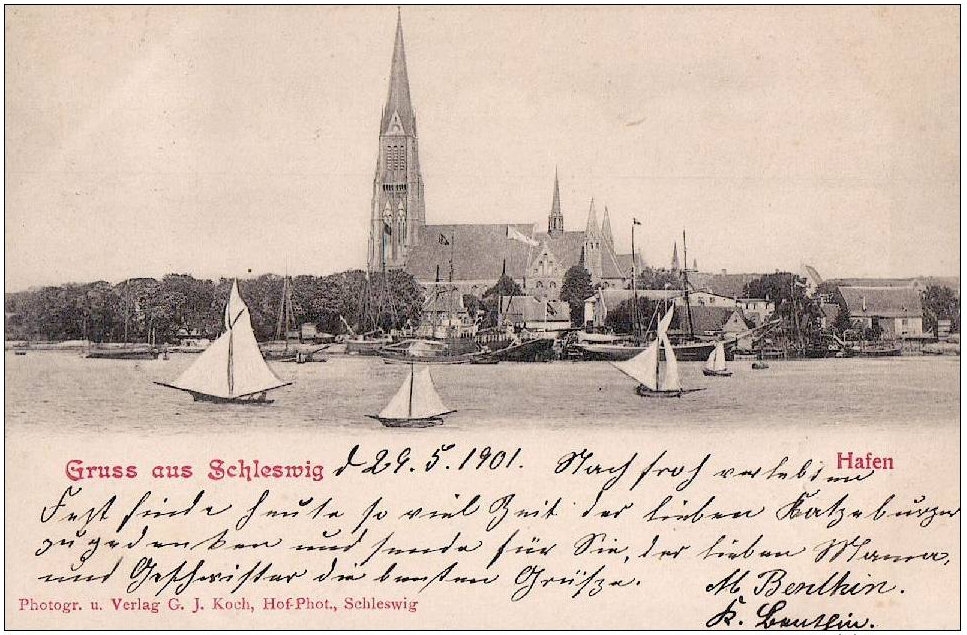 Gruss aus Schleswig d 29. 5. 1901. Nach froh verlebten Hafen
Fest finde heute so viel Zeit der lieben Ratzeburger
zu gedenken und sende für Sie, der lieben Mama,
und Geschwister die besten Grüsze.
M. Benthin.
K. Benthin.
Photogr. u. Verlag G. J. Koch, Hof-Phot., Schleswig